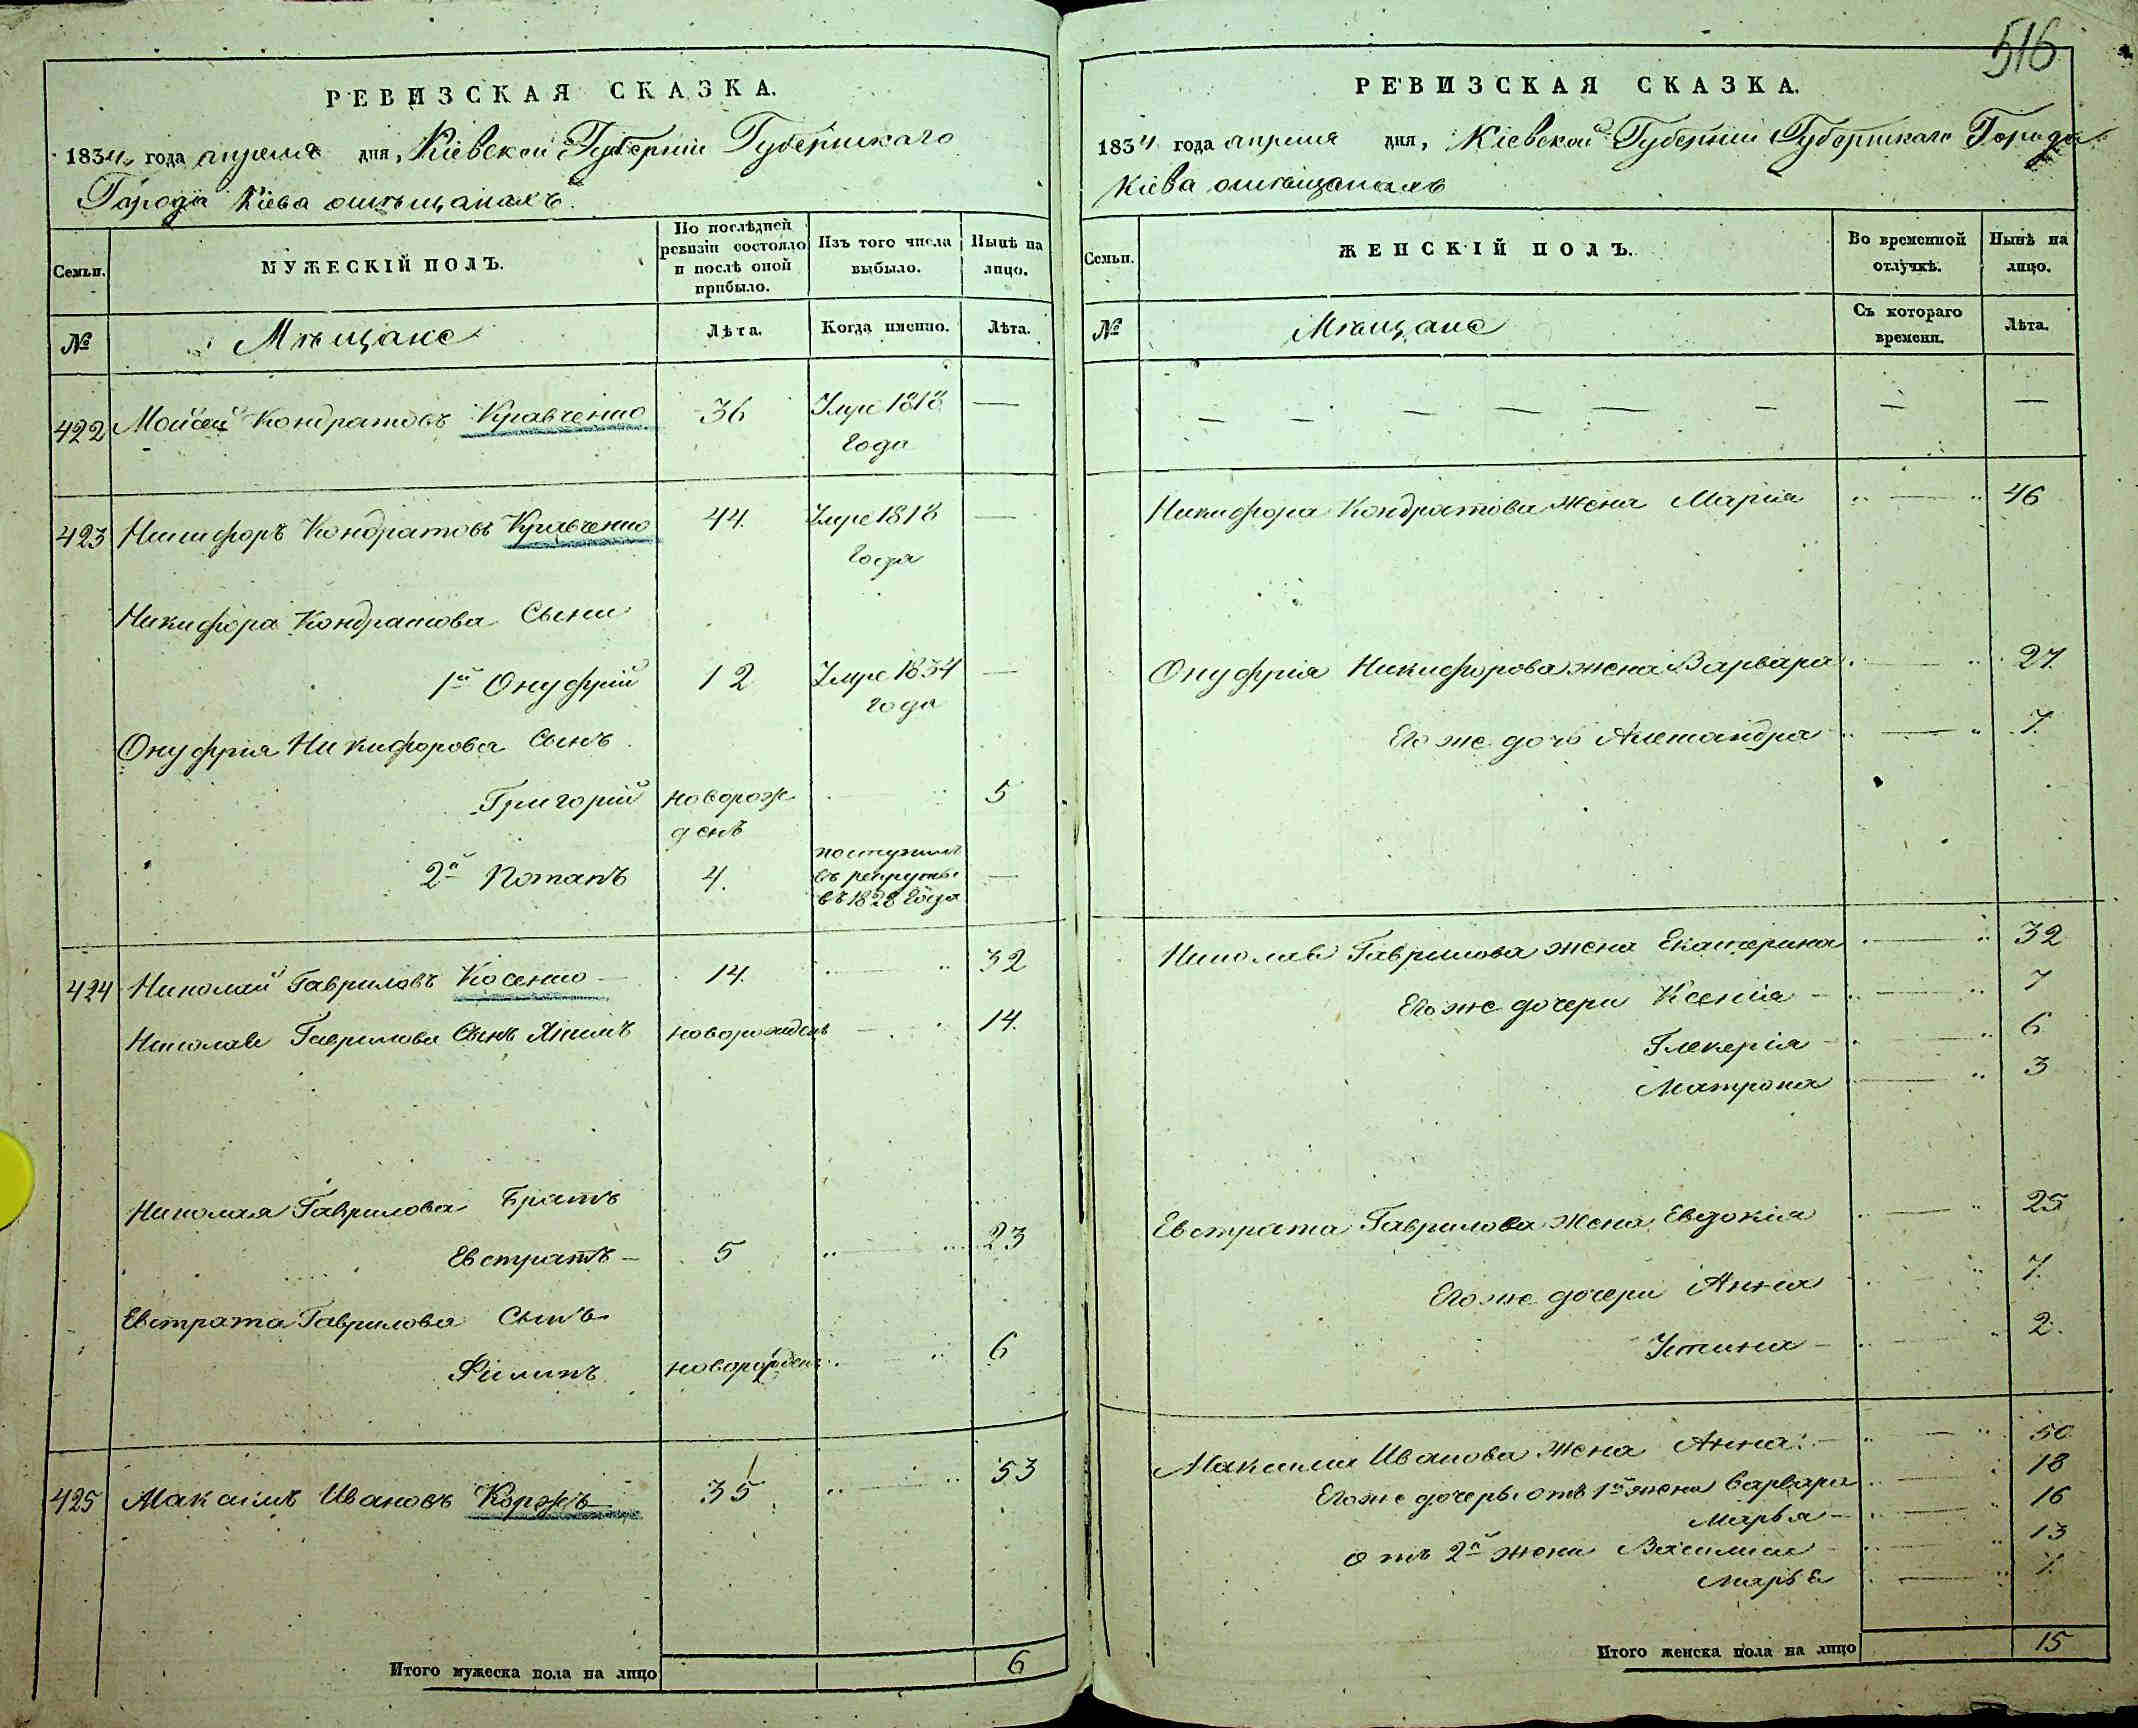 516
РЕВИЗСКАЯ СКАЗКА.
1834 года апреля дня, Кіевской Губерніи Губернскаго
Города Кіева омѣщанахъ.
Семьи.
МУЖЕСКІЙ ПОЛЪ.
По послѣдней ревизіи состояло и послѣ оной прибыло.
Изъ того числа выбыло.
Нынѣ на лицо.
№
Мѣщане
Лѣта.
Когда именно.
Лѣта.
422 Мойсей Кондратовъ Кравченко 36 Умре 1818 года —
423 Никифоръ Кондратовъ Кравченко 44. Умре 1818 года —
Никифора Кондратова Сыни
1й Онуфрій 12 Умре 1834 года —
Онуфрія Никифорова Сынъ
Григорій новорожденъ 5
2й Потапъ 4. поступилъ въ рекруты въ 1828 года —
424 Николай Гавриловъ Косенко 14. 32
Николая Гаврилова Сынъ Якимъ новорожденъ 14.
Николая Гаврилова Братъ
Евстратъ 5 23
Евстрата Гаврилова Сынъ
Филипъ новорожденъ 6
425 Максимъ Ивановъ Коржъ 35 53
Итого мужеска пола на лицо 6
РЕВИЗСКАЯ СКАЗКА.
1834 года апреля дня, Кіевской Губерніи Губернскаго Города
Кіева омѣщанахъ
Семьи.
ЖЕНСКІЙ ПОЛЪ.
Во временной отлучкѣ.
Нынѣ на лицо.
№
Мѣщане
Съ котораго времени.
Лѣта.
— — — — — — — —
Никифора Кондратова жена Марія 46
Онуфрія Никифорова жена Варвара 27.
Его же дочь Александра 7.
Николая Гаврилова жена Екатерина 32
Его же дочери Ксенія 7
Гликерія 6
Матрона 3
Евстрата Гаврилова жена Евдокія 25
Его же дочери Анна 7.
Устина 2.
Максима Иванова жена Анна 50
Его же дочеры отъ 1й жени Варвара 18
Марья 16
отъ 2й жени 13
Марья
Итого женска пола на лицо 15